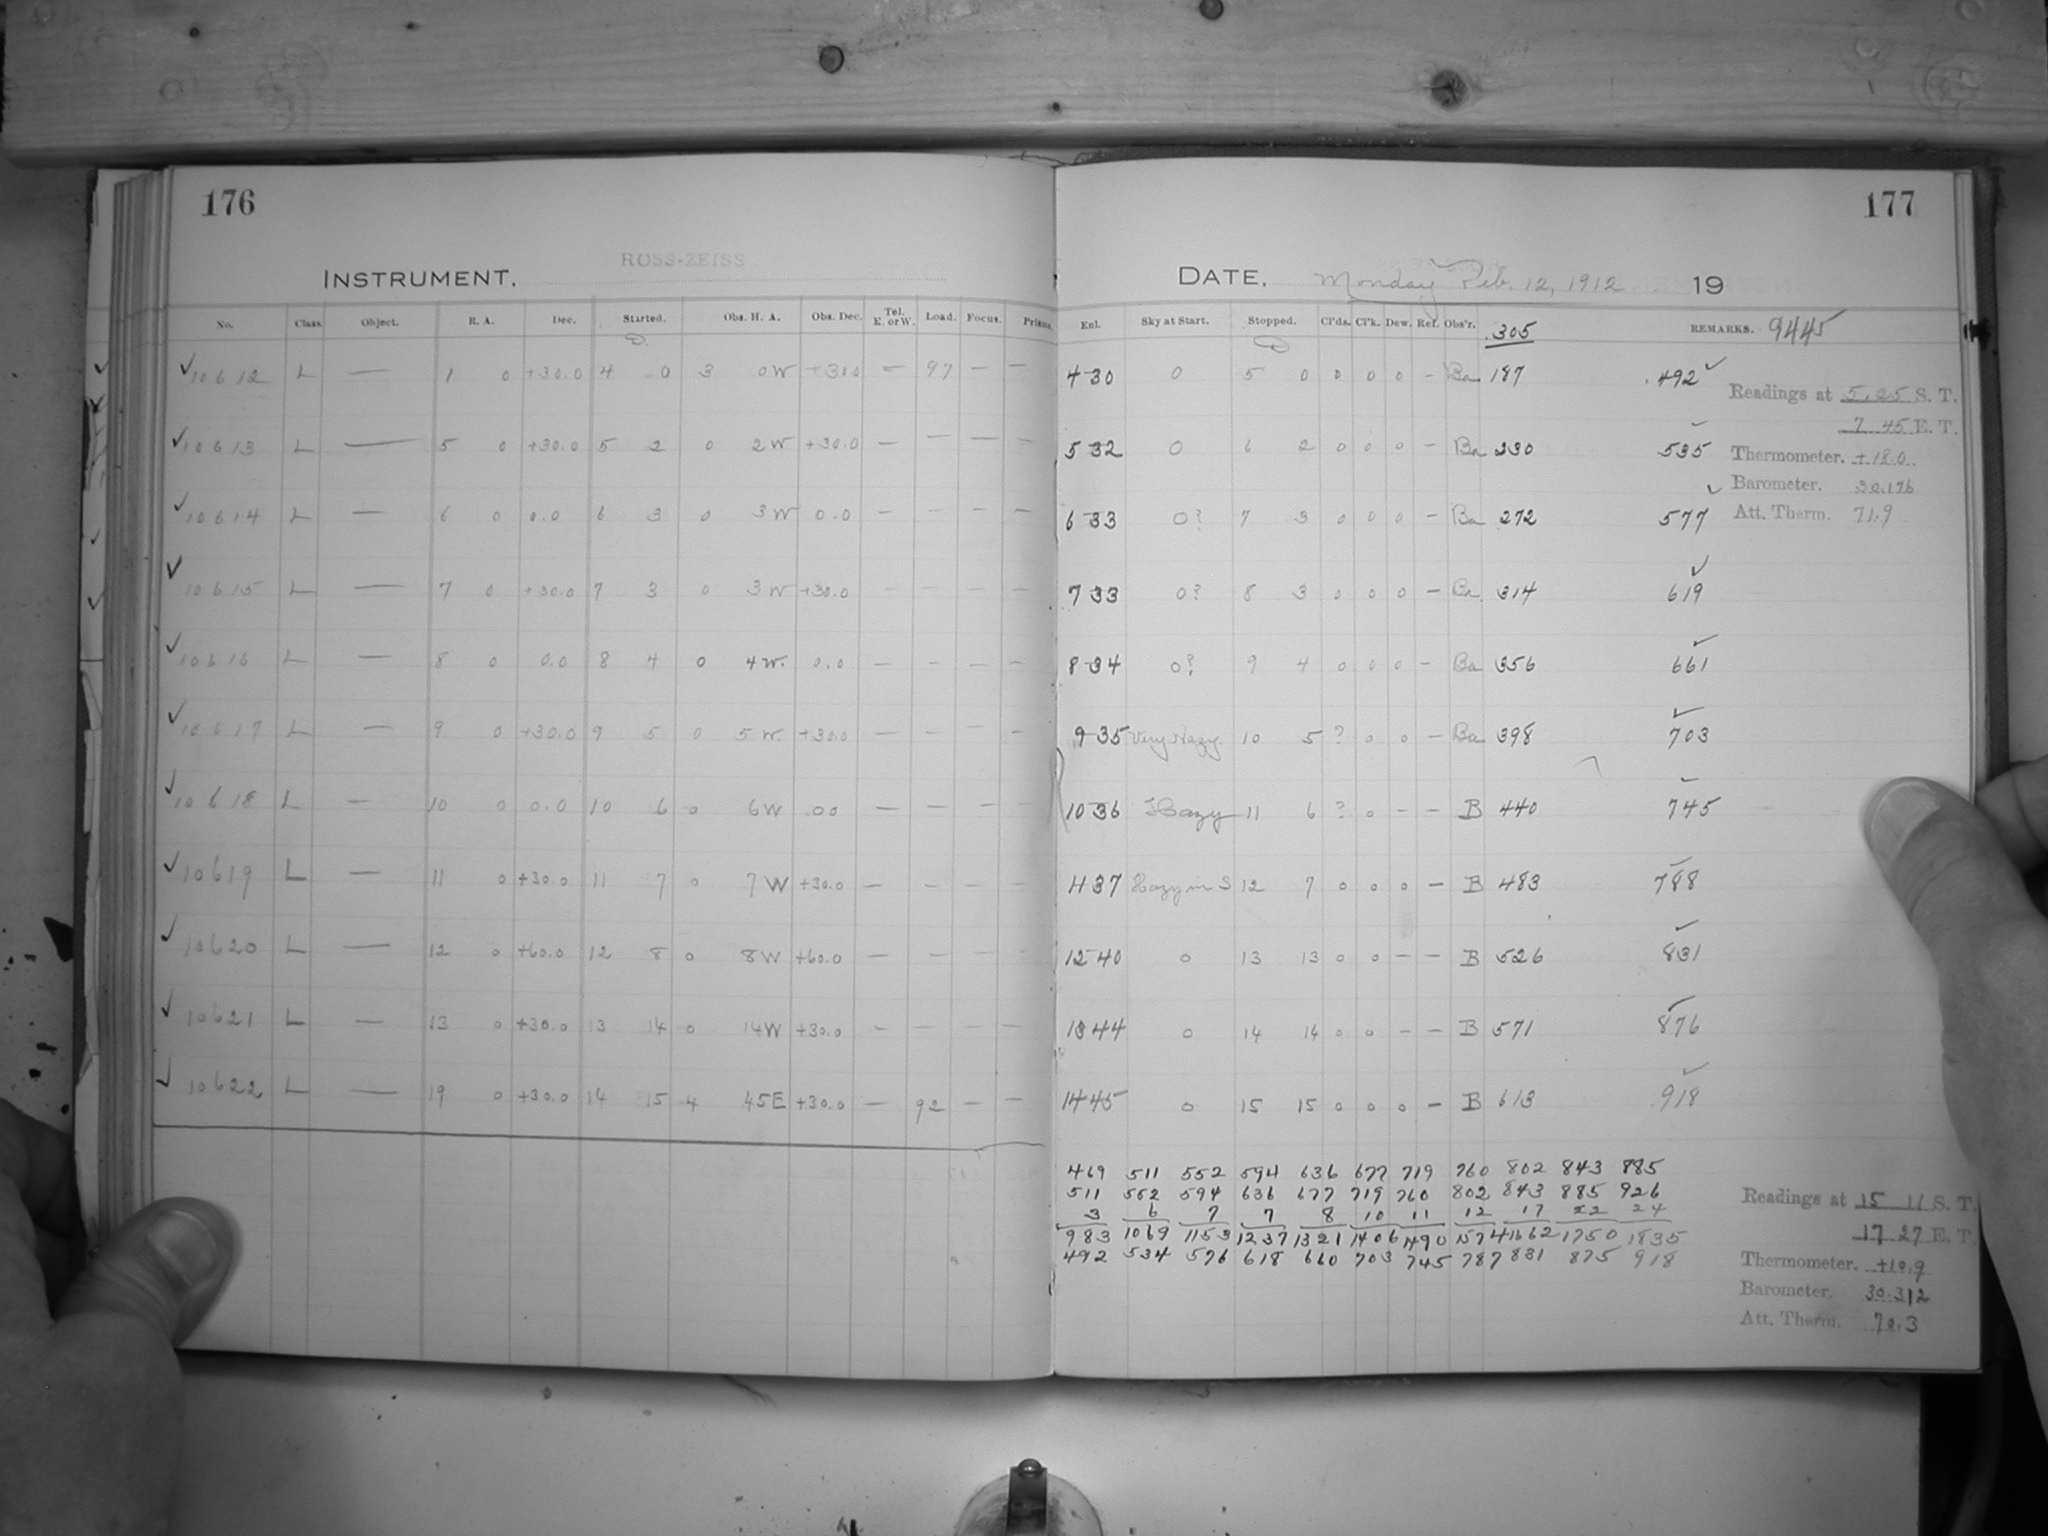 176
177
ROSS-ZEISS
INSTRUMENT.
DATE, Monday Feb. 12, 1912 19
No. Class. Object. R. A. Dec. Started. Obs. H. A. Obs. Dec. Tel. E. or W. Load. Focus. Prisms. Enl. Sky at Start. Stopped. Cl'ds. Cl'k. Dew. Ref. Obs'r. .305 REMARKS. 9445
✓ 10612 L — 1 0 +30.0 4 0 3 0W +30.0 — 97 — — 4 30 0 5 0 0 0 0 — Ba 187 .492 ✓
Readings at 5.25 S. T.
7 45 E. T.
✓ 10613 L — 5 0 +30.0 5 2 0 2W +30.0 — — — — 5 32 0 6 2 0 0 0 — Ba 230 535 ✓
Thermometer. +18.0
Barometer. 30.176
✓ 10614 L — 6 0 0.0 6 3 0 3W 0.0 — — — — 6 33 0? 7 3 0 0 0 — Ba 272 577 ✓
Att. Therm. 71.9
✓ 10615 L — 7 0 +30.0 7 3 0 3W +30.0 — — — — 7 33 0? 8 3 0 0 0 — Ba 314 619 ✓
✓ 10616 L — 8 0 0.0 8 4 0 4W. 0.0 — — — — 8 34 0? 9 4 0 0 0 — Ba 356 661 ✓
✓ 10617 L — 9 0 +30.0 9 5 0 5W. +30.0 — — — — 9 35 Very Hazy 10 5 ? 0 0 — Ba 398 703 ✓
✓ 10618 L — 10 0 0.0 10 6 0 6W 00 — — — — 10 36 Hazy 11 6 ? 0 — — B 440 745 ✓
✓ 10619 L — 11 0 +30.0 11 7 0 7W +30.0 — — — — 11 37 Hazy in S 12 7 0 0 0 — B 483 788 ✓
✓ 10620 L — 12 0 +60.0 12 8 0 8W +60.0 — — — — 12 40 0 13 13 0 0 — — B 526 831 ✓
✓ 10621 L — 13 0 +30.0 13 14 0 14W +30.0 — — — — 13 44 0 14 14 0 0 — — B 571 876 ✓
✓ 10622 L — 19 0 +30.0 14 15 4 45E +30.0 — 92 — — 14 45 0 15 15 0 0 0 — B 613 .918 ✓
469 511 552 594 636 677 719 760 802 843 885
511 552 594 636 677 719 760 802 843 885 926
3 6 7 7 8 10 11 12 17 22 24
983 1069 1153 1237 1321 1406 1490 1574 1662 1750 1835
492 534 576 618 660 703 745 787 831 875 918
Readings at 15 11 S. T.
17 27 E. T.
Thermometer. +10.9
Barometer. 30.312
Att. Therm. 70.3